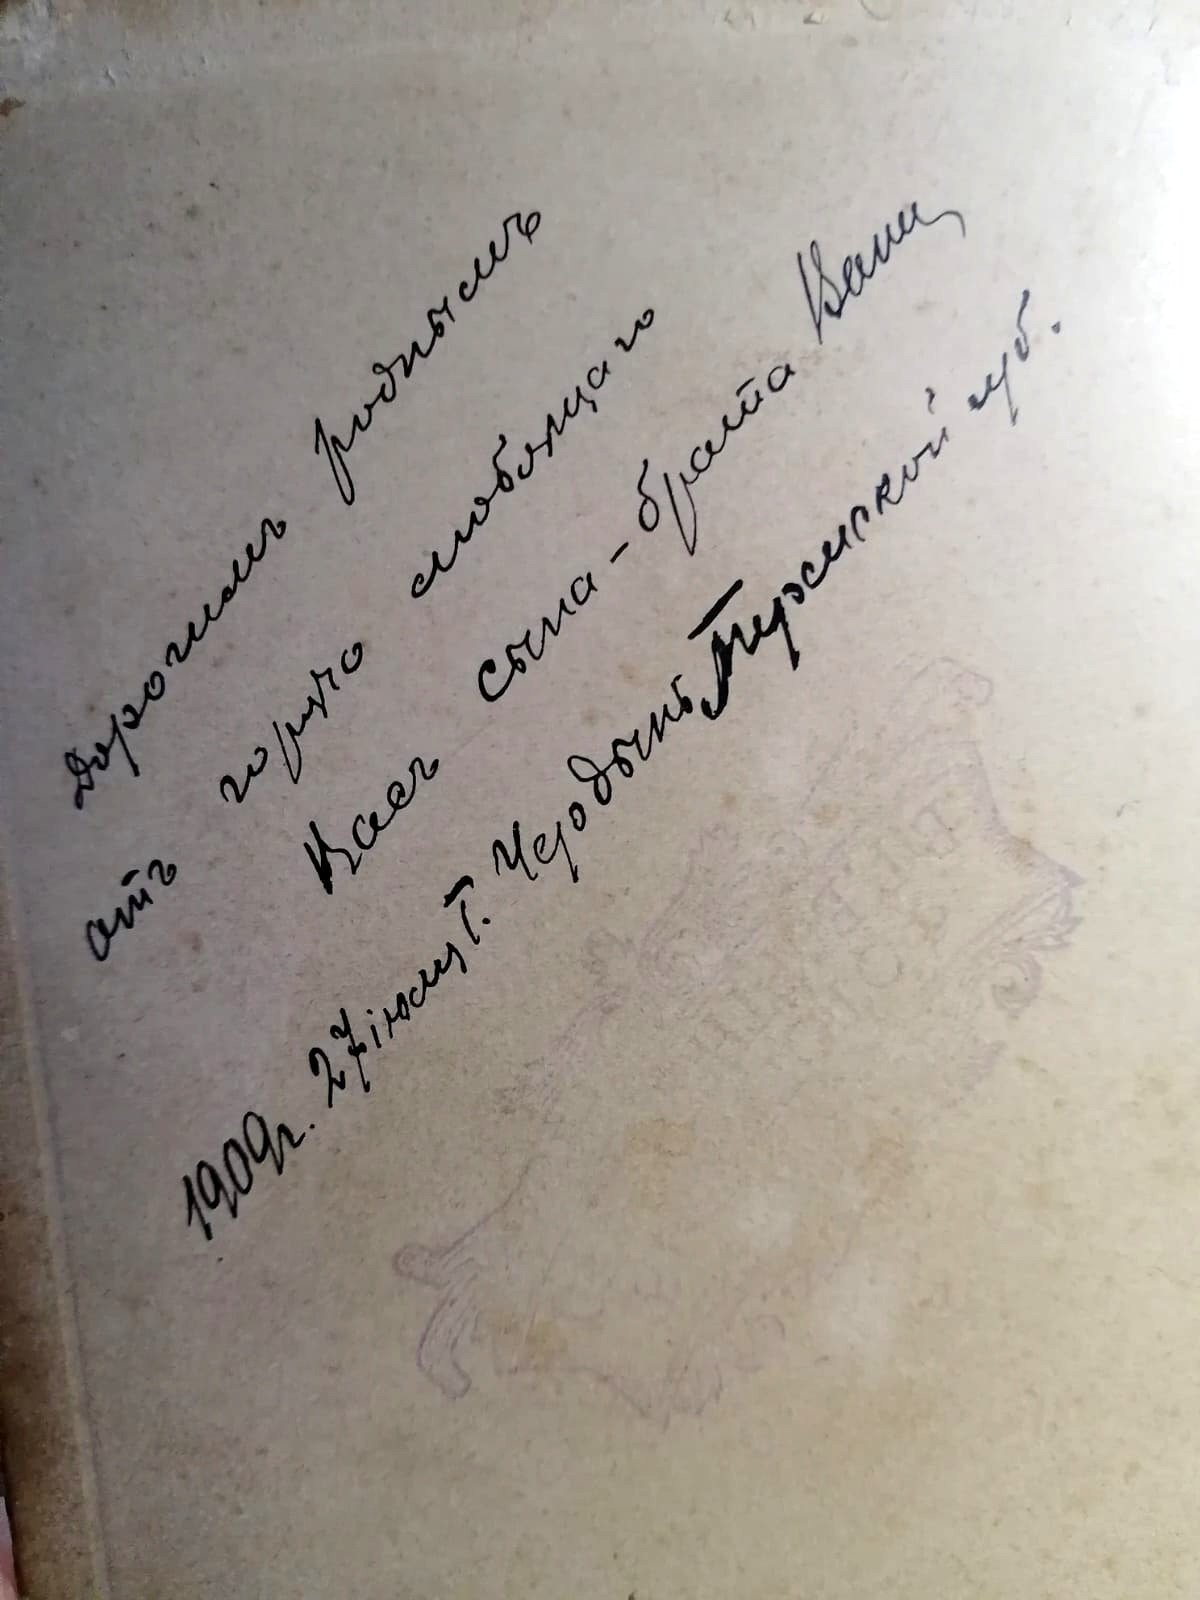 Дорогимъ роднымъ
отъ горячо любящаго
Васъ сына-брата Вани
1909г. 27 іюля Г. Чердынь Пермской губ.